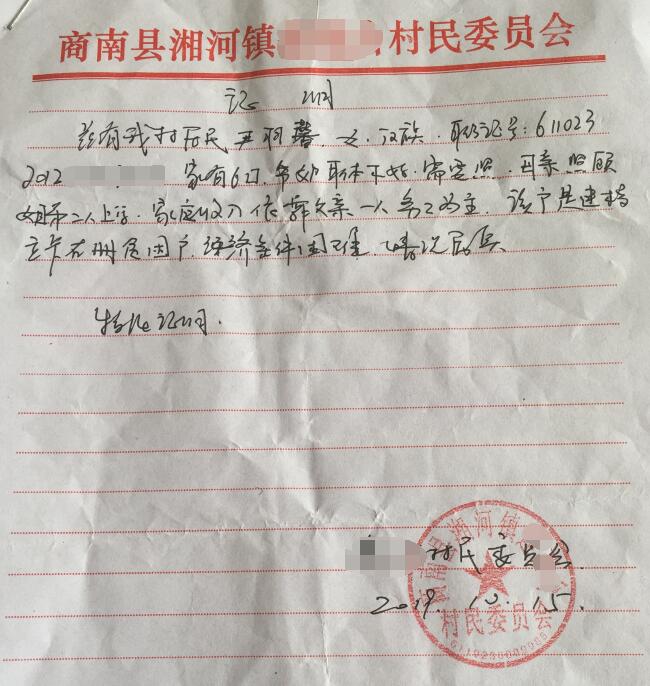 商南县湘河镇 村民委员会
证 明
兹有我村居民尹羽馨，女，汉族，身份证号：611023
2012 家有6口，爷奶年体不好，需要照，母亲照顾
姐弟二人上学，家庭收入依靠父亲一人务工为主，该户是建档
立卡在册贫困户，经济条件困难，情况属实。
特此证明。
村民委员会
2019.10.15.
商南县湘河镇
村民委员会